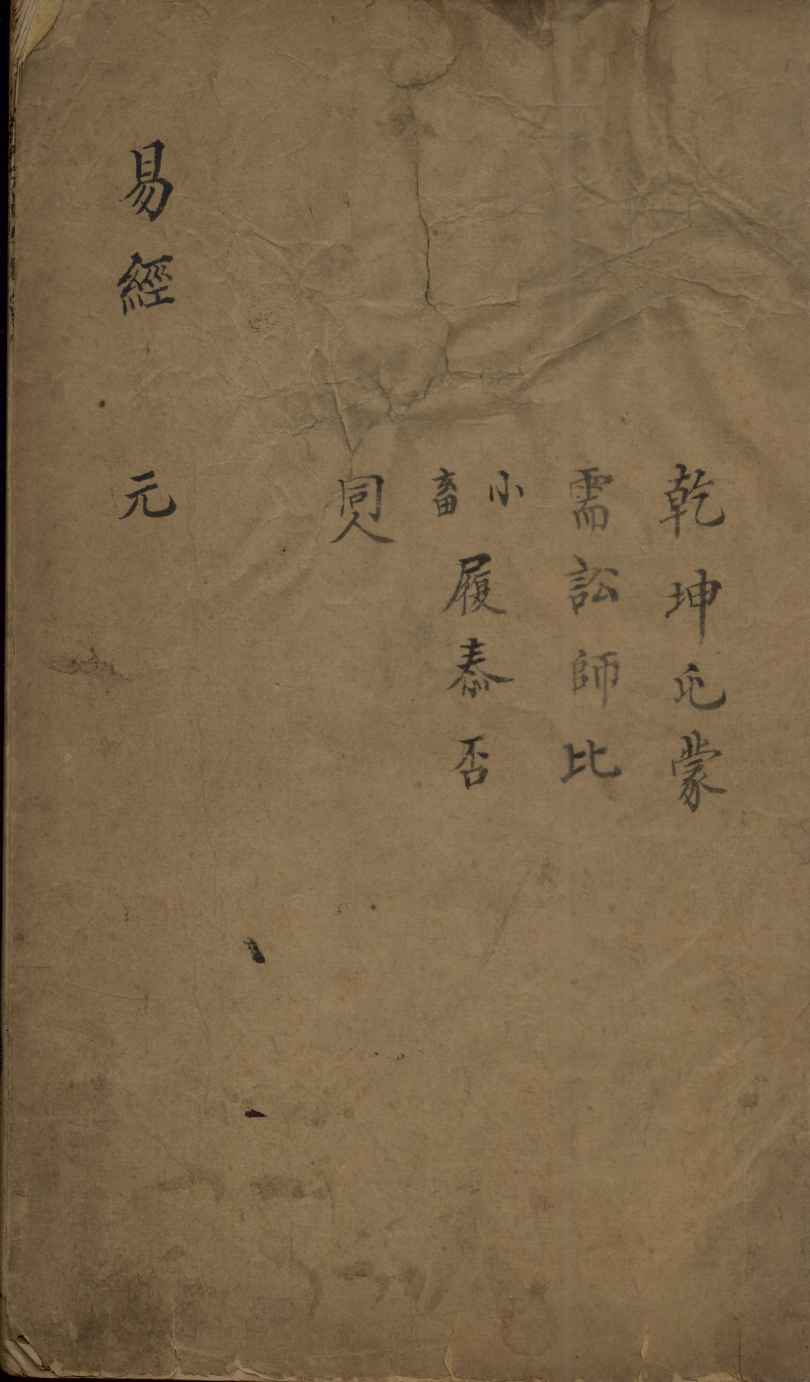 乾坤屯蒙
需訟師比
小畜履泰否
同人
易經 元